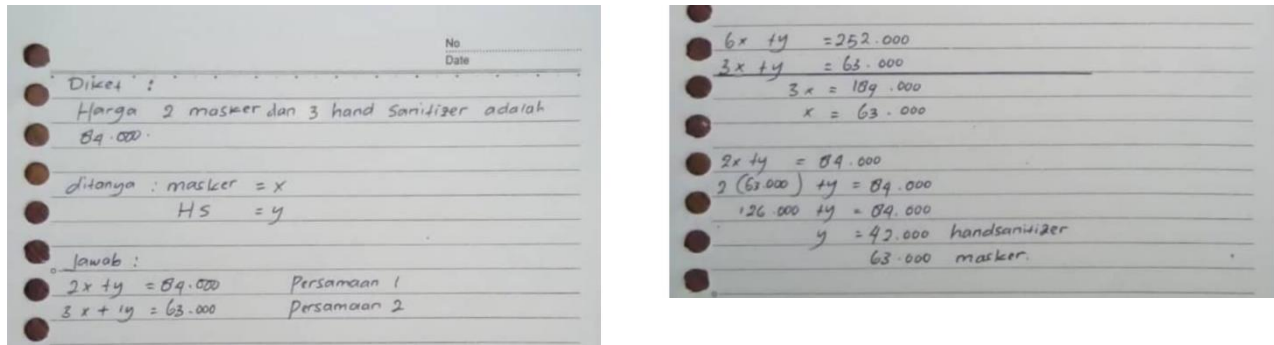 No
Date
Diket :
Harga 2 masker dan 3 hand Sanitizer adalah
84.000.
ditanya : masker = x
HS = y
Jawab :
2x + y = 84.000 Persamaan 1
3x + 1y = 63.000 Persamaan 2
6x + y = 252.000
3x + y = 63.000
3x = 189.000
x = 63.000
2x + y = 84.000
2 (63.000) + y = 84.000
126.000 + y = 84.000
y = 42.000 handsanitizer
63.000 masker.